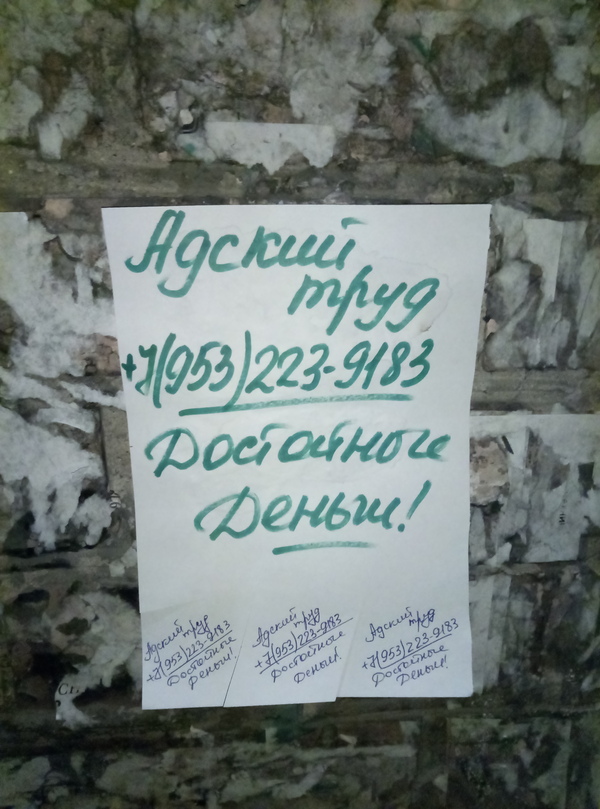 Адский
труд
+7(953)223-9183
Достойные
Деньги!
Адский
труд
+7(953)223-9183
Достойные
Деньги!
Адский
труд
+7(953)223-9183
Достойные
Деньги!
Адский
труд
+7(953)223-9183
Достойные
Деньги!